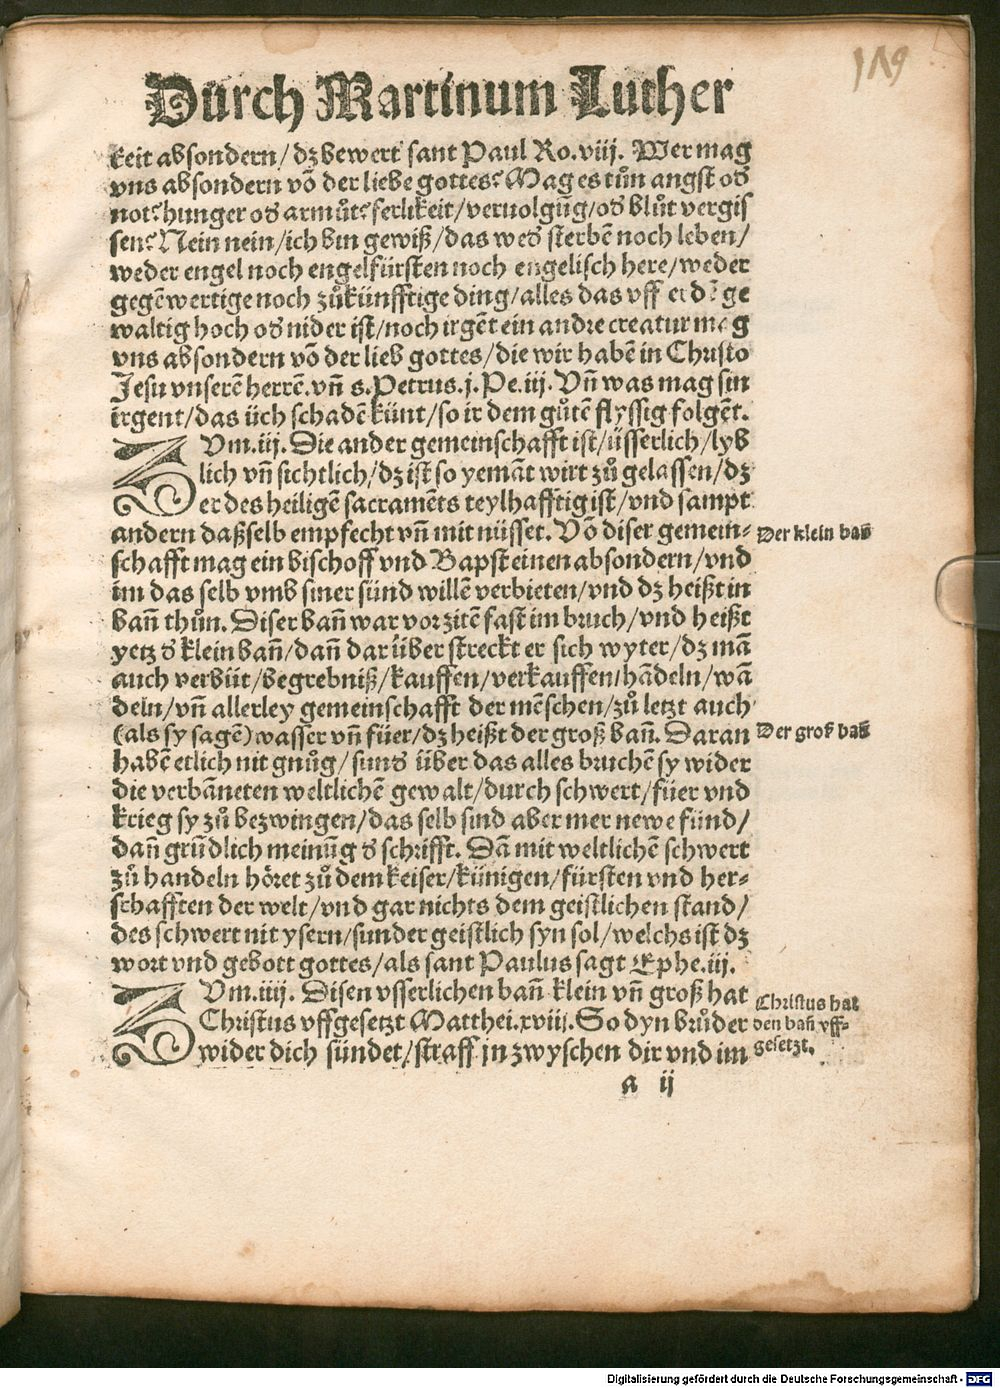 Durch Martinum Luther
119
keit absondern/ dz bewert sant Paul Ro.viij. Wer mag
vns absondern vō der liebe gottes? Mag es tůn angst oď
not? hunger oď armůt? ferlikeit/ veruolgūg/ oď blůt vergis
sen? Nein nein/ ich bin gewiß/ das weď sterbē noch leben/
weder engel noch engelfürsten noch engelisch here/ weder
gegēwertige noch zůkünfftige ding/ alles das vff erdē ge
waltig hoch oď nider ist/ noch irgēt ein andre creatur mag
vns absondern vō der lieb gottes/ die wir habē in Christo
Jesu vnserē herrē. vn̄ s. Petrus. j. Pe. iij. Vn̄ was mag sin
irgent/ das üch schadē künt/ so ir dem gůtē flyssig folgēt.
ZVm .iij. Die ander gemeinschafft ist/ üsserlich/ lyb
lich vn̄ sichtlich/ dz ist so yemāt wirt zů gelassen/ dz
er des heiligē sacramēts teylhafftig ist/ vnd sampt
andern daßselb empfecht vn̄ mit nüsset. Vō diser gemein-
Der klein ban̄
schafft mag ein bischoff vnd Bapst einen absondern/ vnd
im das selb vmb siner sünd willē verbieten/ vnd dz heißt in
ban̄ thůn. Diser ban̄ war vor zitē fast im bruch/ vnd heißt
yetz ď klein ban̄/ dan̄ dar über streckt er sich wyter/ dz mā
auch verbüt/ begrebniß/ kauffen/ verkauffen/ hādeln/ wā
deln/ vn̄ allerley gemeinschafft der mēschen/ zů letzt auch
(als sy sagē) wasser vn̄ füer/ dz heißt der groß ban̄. Daran
Der groß ban̄
habē etlich nit gnůg/ sunď über das alles bruchē sy wider
die verbāneten weltlichē gewalt/ durch schwert/ füer vnd
krieg sy zů bezwingen/ das selb sind aber mer newe fünd/
dan̄ grūdlich meinūg ď schrifft. Dā mit weltlichē schwert
zů handeln höret zů dem keiser/ künigen/ fürsten vnd her-
schafften der welt/ vnd gar nichts dem geistlichen stand/
des schwert nit ysern/ sunder geistlich syn sol/ welchs ist dz
wort vnd gebott gottes/ als sant Paulus sagt Ephe. iij.
ZVm .iiij. Disen vsserlichen ban̄ klein vn̄ groß hat
Christus vffgesetzt Matthei. xviij. So dyn brůder
wider dich sündet/ straff jn zwyschen dir vnd im
Christus hat
den ban̄ vff-
gesetzt.
a ij
Digitalisierung gefördert durch die Deutsche Forschungsgemeinschaft - DFG